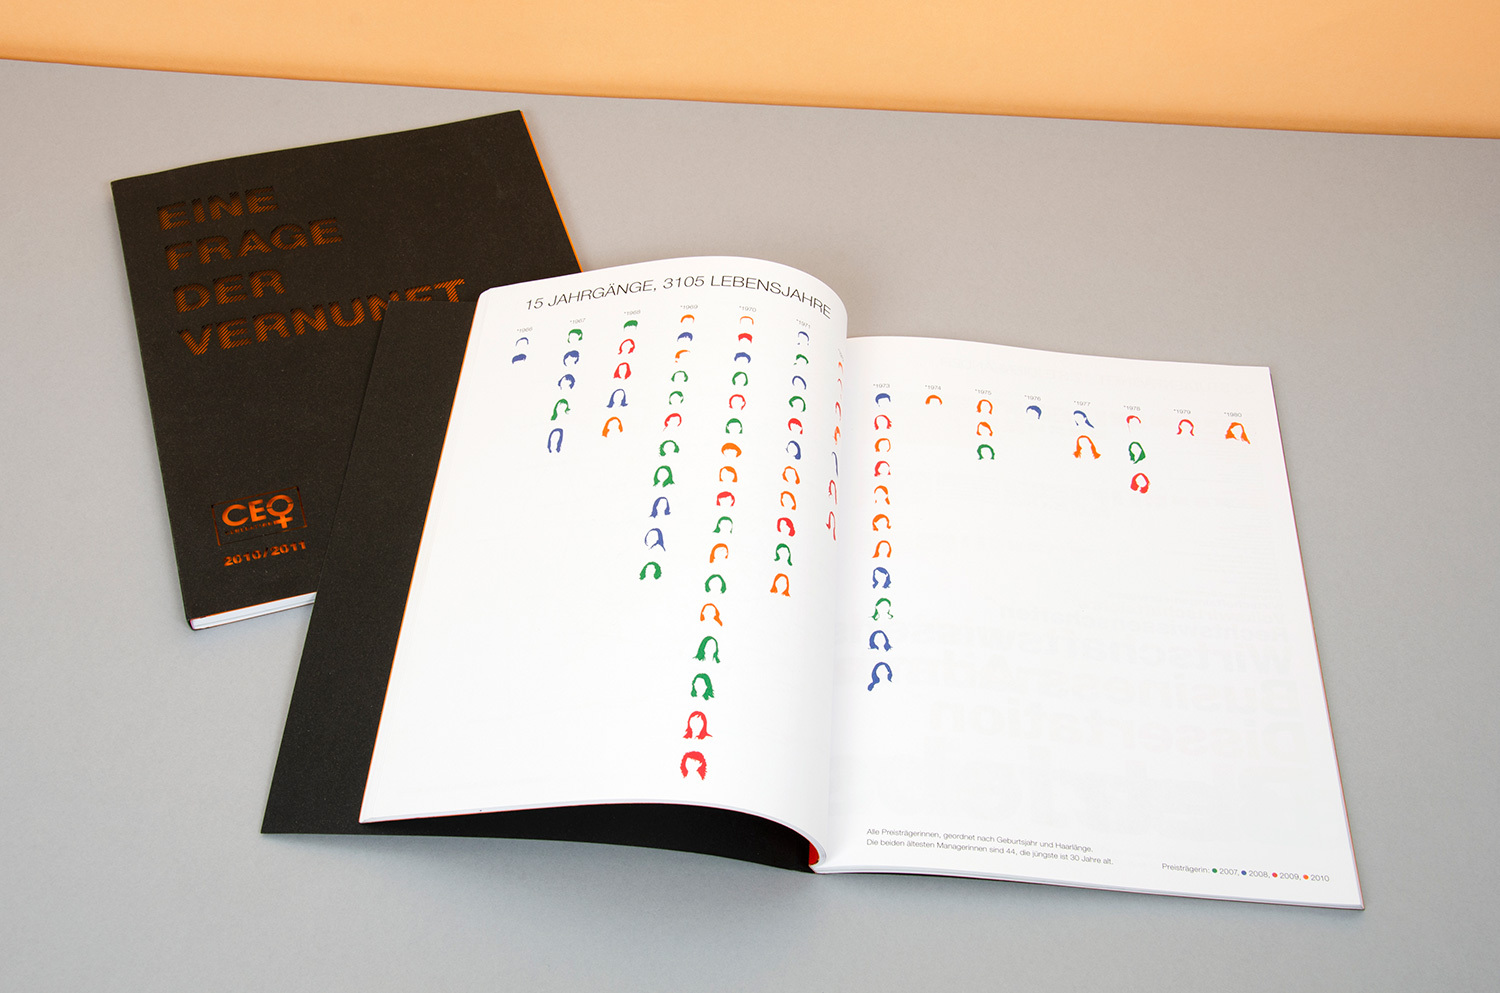 EINE
FRAGE
DER
VERNUNFT
CEO
2010/2011
15 JAHRGÄNGE, 3105 LEBENSJAHRE
*1966 *1967 *1968 *1969 *1970 *1971
*1973 *1974 *1975 *1976 *1977 *1978 *1979 *1980
Alle Preisträgerinnen, geordnet nach Geburtsjahr und Haarlänge.
Die beiden ältesten Managerinnen sind 44, die jüngste ist 30 Jahre alt.
Preisträgerin: 2007, 2008, 2009, 2010